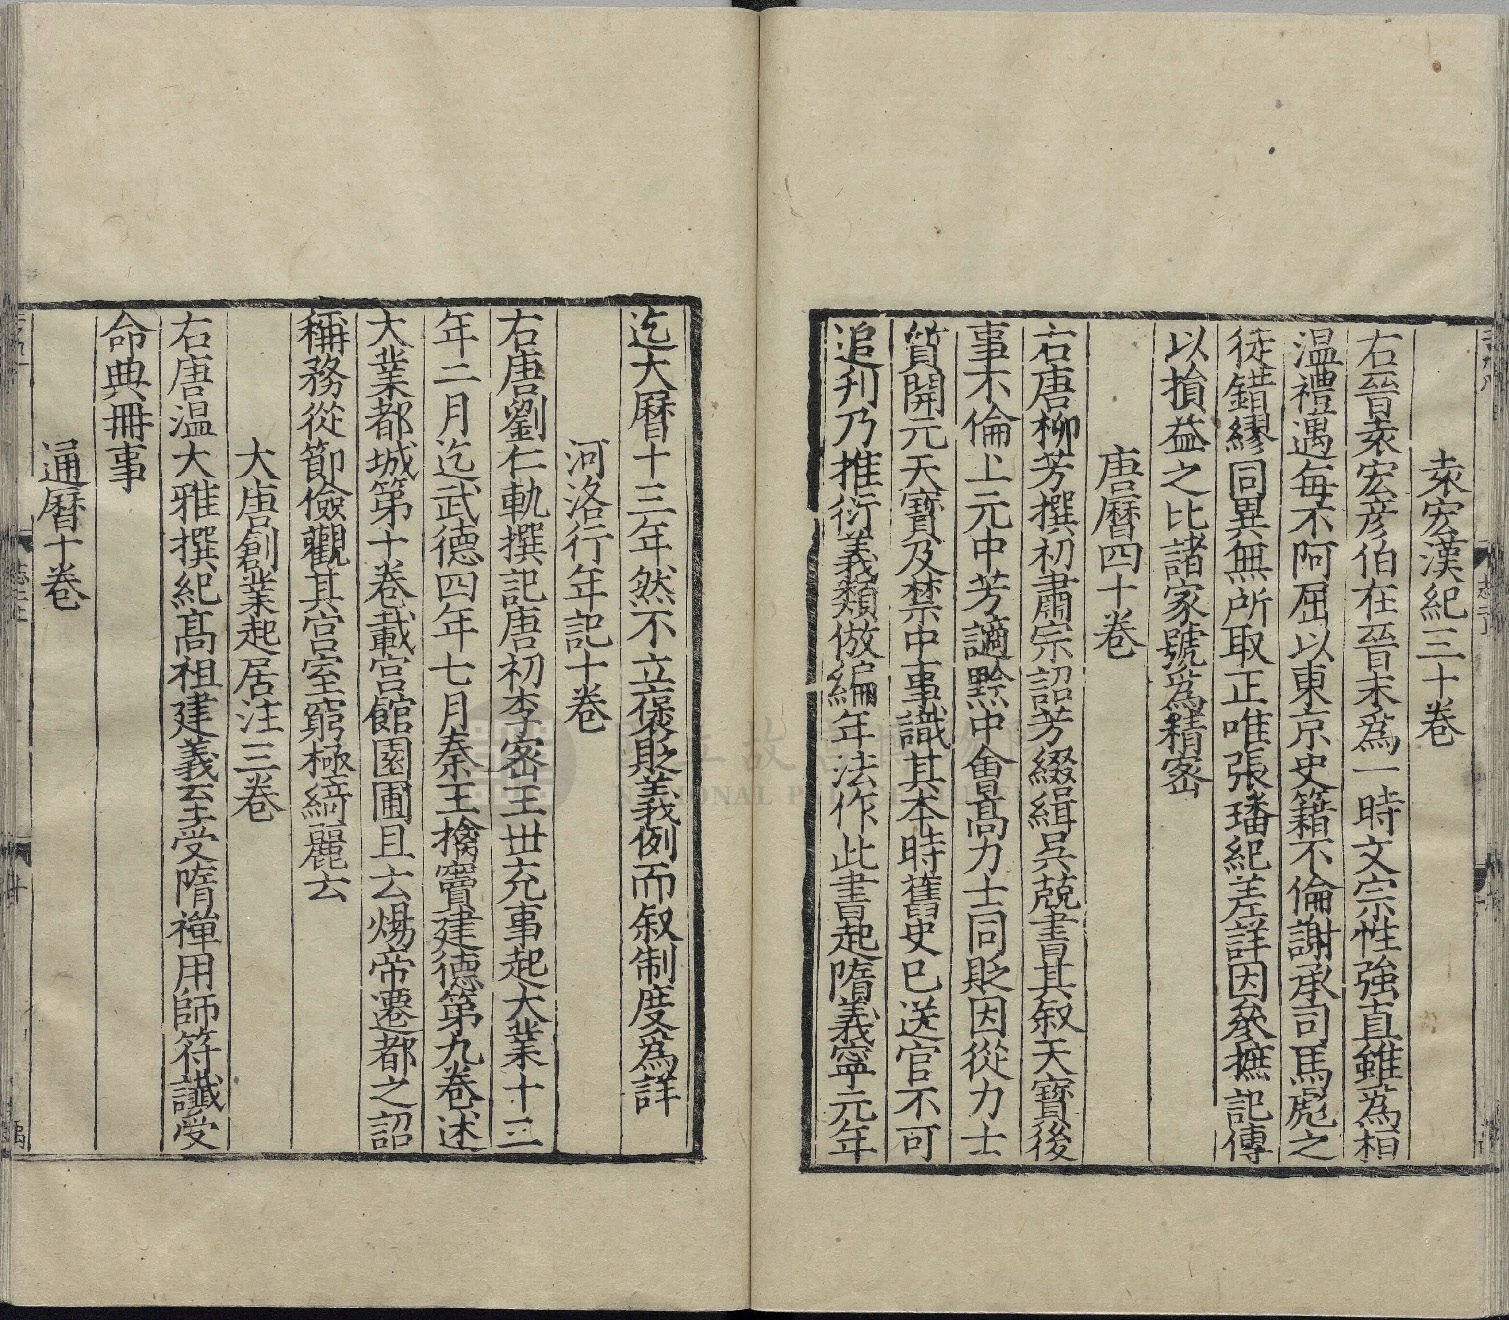 袁宏漢紀三十卷
右晉袁宏彦伯在晉末爲一時文宗性強真雖爲桓
温禮遇每不阿屈以東京史籍不倫謝承司馬彪之
徒錯繆同異無所取正唯張璠紀差詳因叅摭記傳
以損益之比諸家號爲精宻
唐曆四十卷
右唐柳芳撰初肅宗詔芳綴緝呉兢書其叙天寶後
事不倫上元中芳謫黔中會髙力士同貶因從力士
質開元天寶及禁中事識其本時舊史已送官不可
追刋乃推衍義類倣編年法作此書起隋義寧元年
迄大曆十三年然不立褒貶義例而叙制度爲詳
河洛行年記十卷
右唐劉仁軌撰記唐初李宻王世充事起大業十三
年二月迄武德四年七月秦王擒竇建德第九卷述
大業都城第十卷載宫館園囿且云煬帝遷都之詔
稱務從節儉觀其宫室窮極綺麗云
大唐創業起居注三卷
右唐温大雅撰紀髙祖建義至受隋禅用師符讖受
命典冊事
通曆十卷